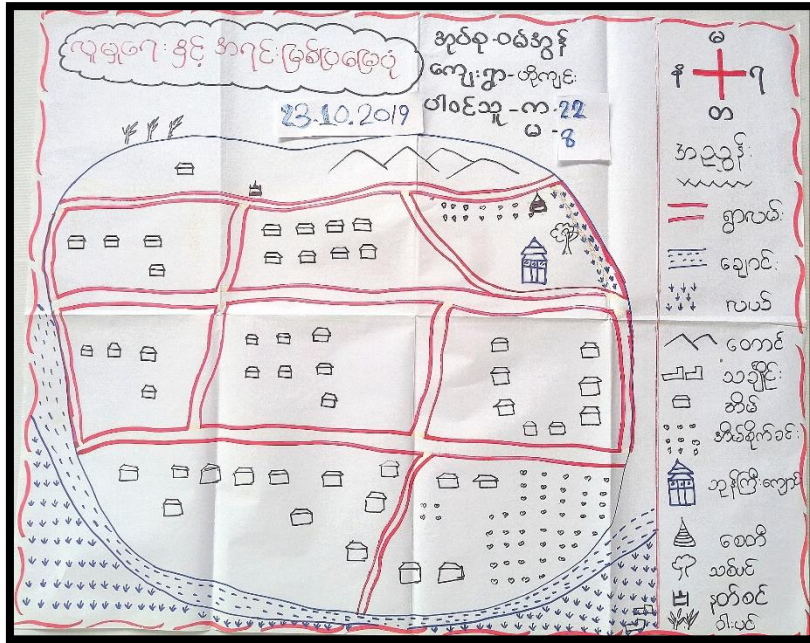 လူမှုရေး နှင့် အရင်းမြစ်ပြမြေပုံ
အုပ်စု-ဝမ်အွန်
ကျေးရွာ-ဟိုကျင်း
ပါဝင်သူ - က - 22
မ - 8
23.10.2019
မ
န
ရ
တ
အညွှန်း
ရွာလမ်း
ချောင်း
လယ်
တောင်
သင်္ချိုင်း
အိမ်
အိမ်စိုက်ခင်း
ဘုန်းကြီးကျောင်း
စေတီ
သစ်ပင်
နတ်စင်
ဝါးပင်